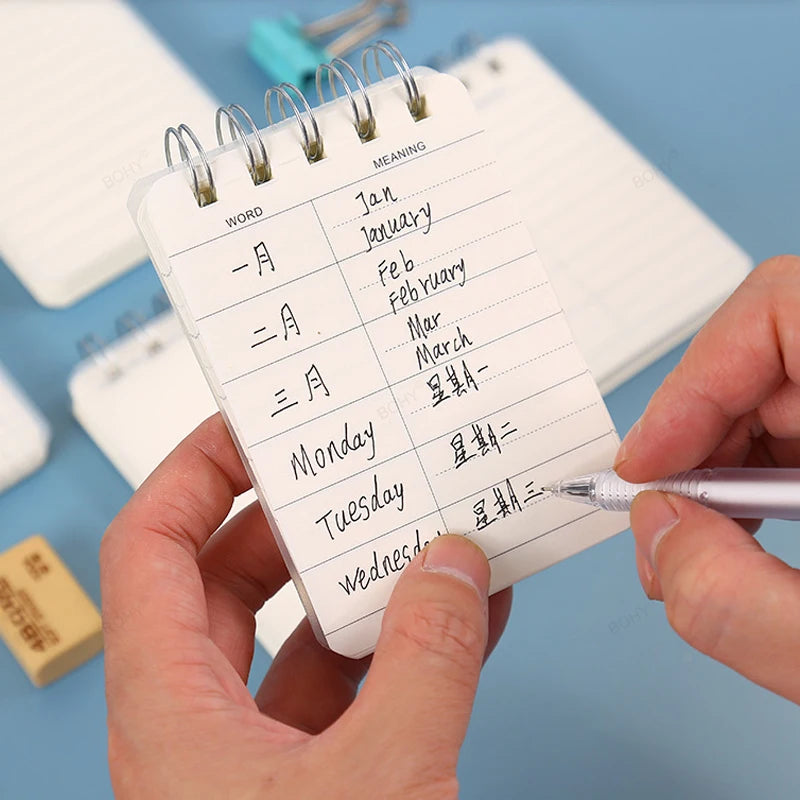 WORD MEANING
一月 Jan
January
二月 Feb
February
三月 Mar
March
Monday 星期一
Tuesday 星期二
Wednesday 星期三
4B
BOHY
BOHY
BOHY
BOHY